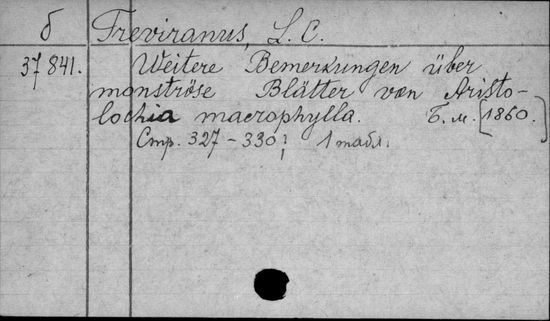 б Treviranus, L. C.
37 841. Weitere Bemerkungen über
monströse Blätter von Aristo-
lochia macrophylla. Б. м. [1860.]
Стр. 327-330; 1 табл.